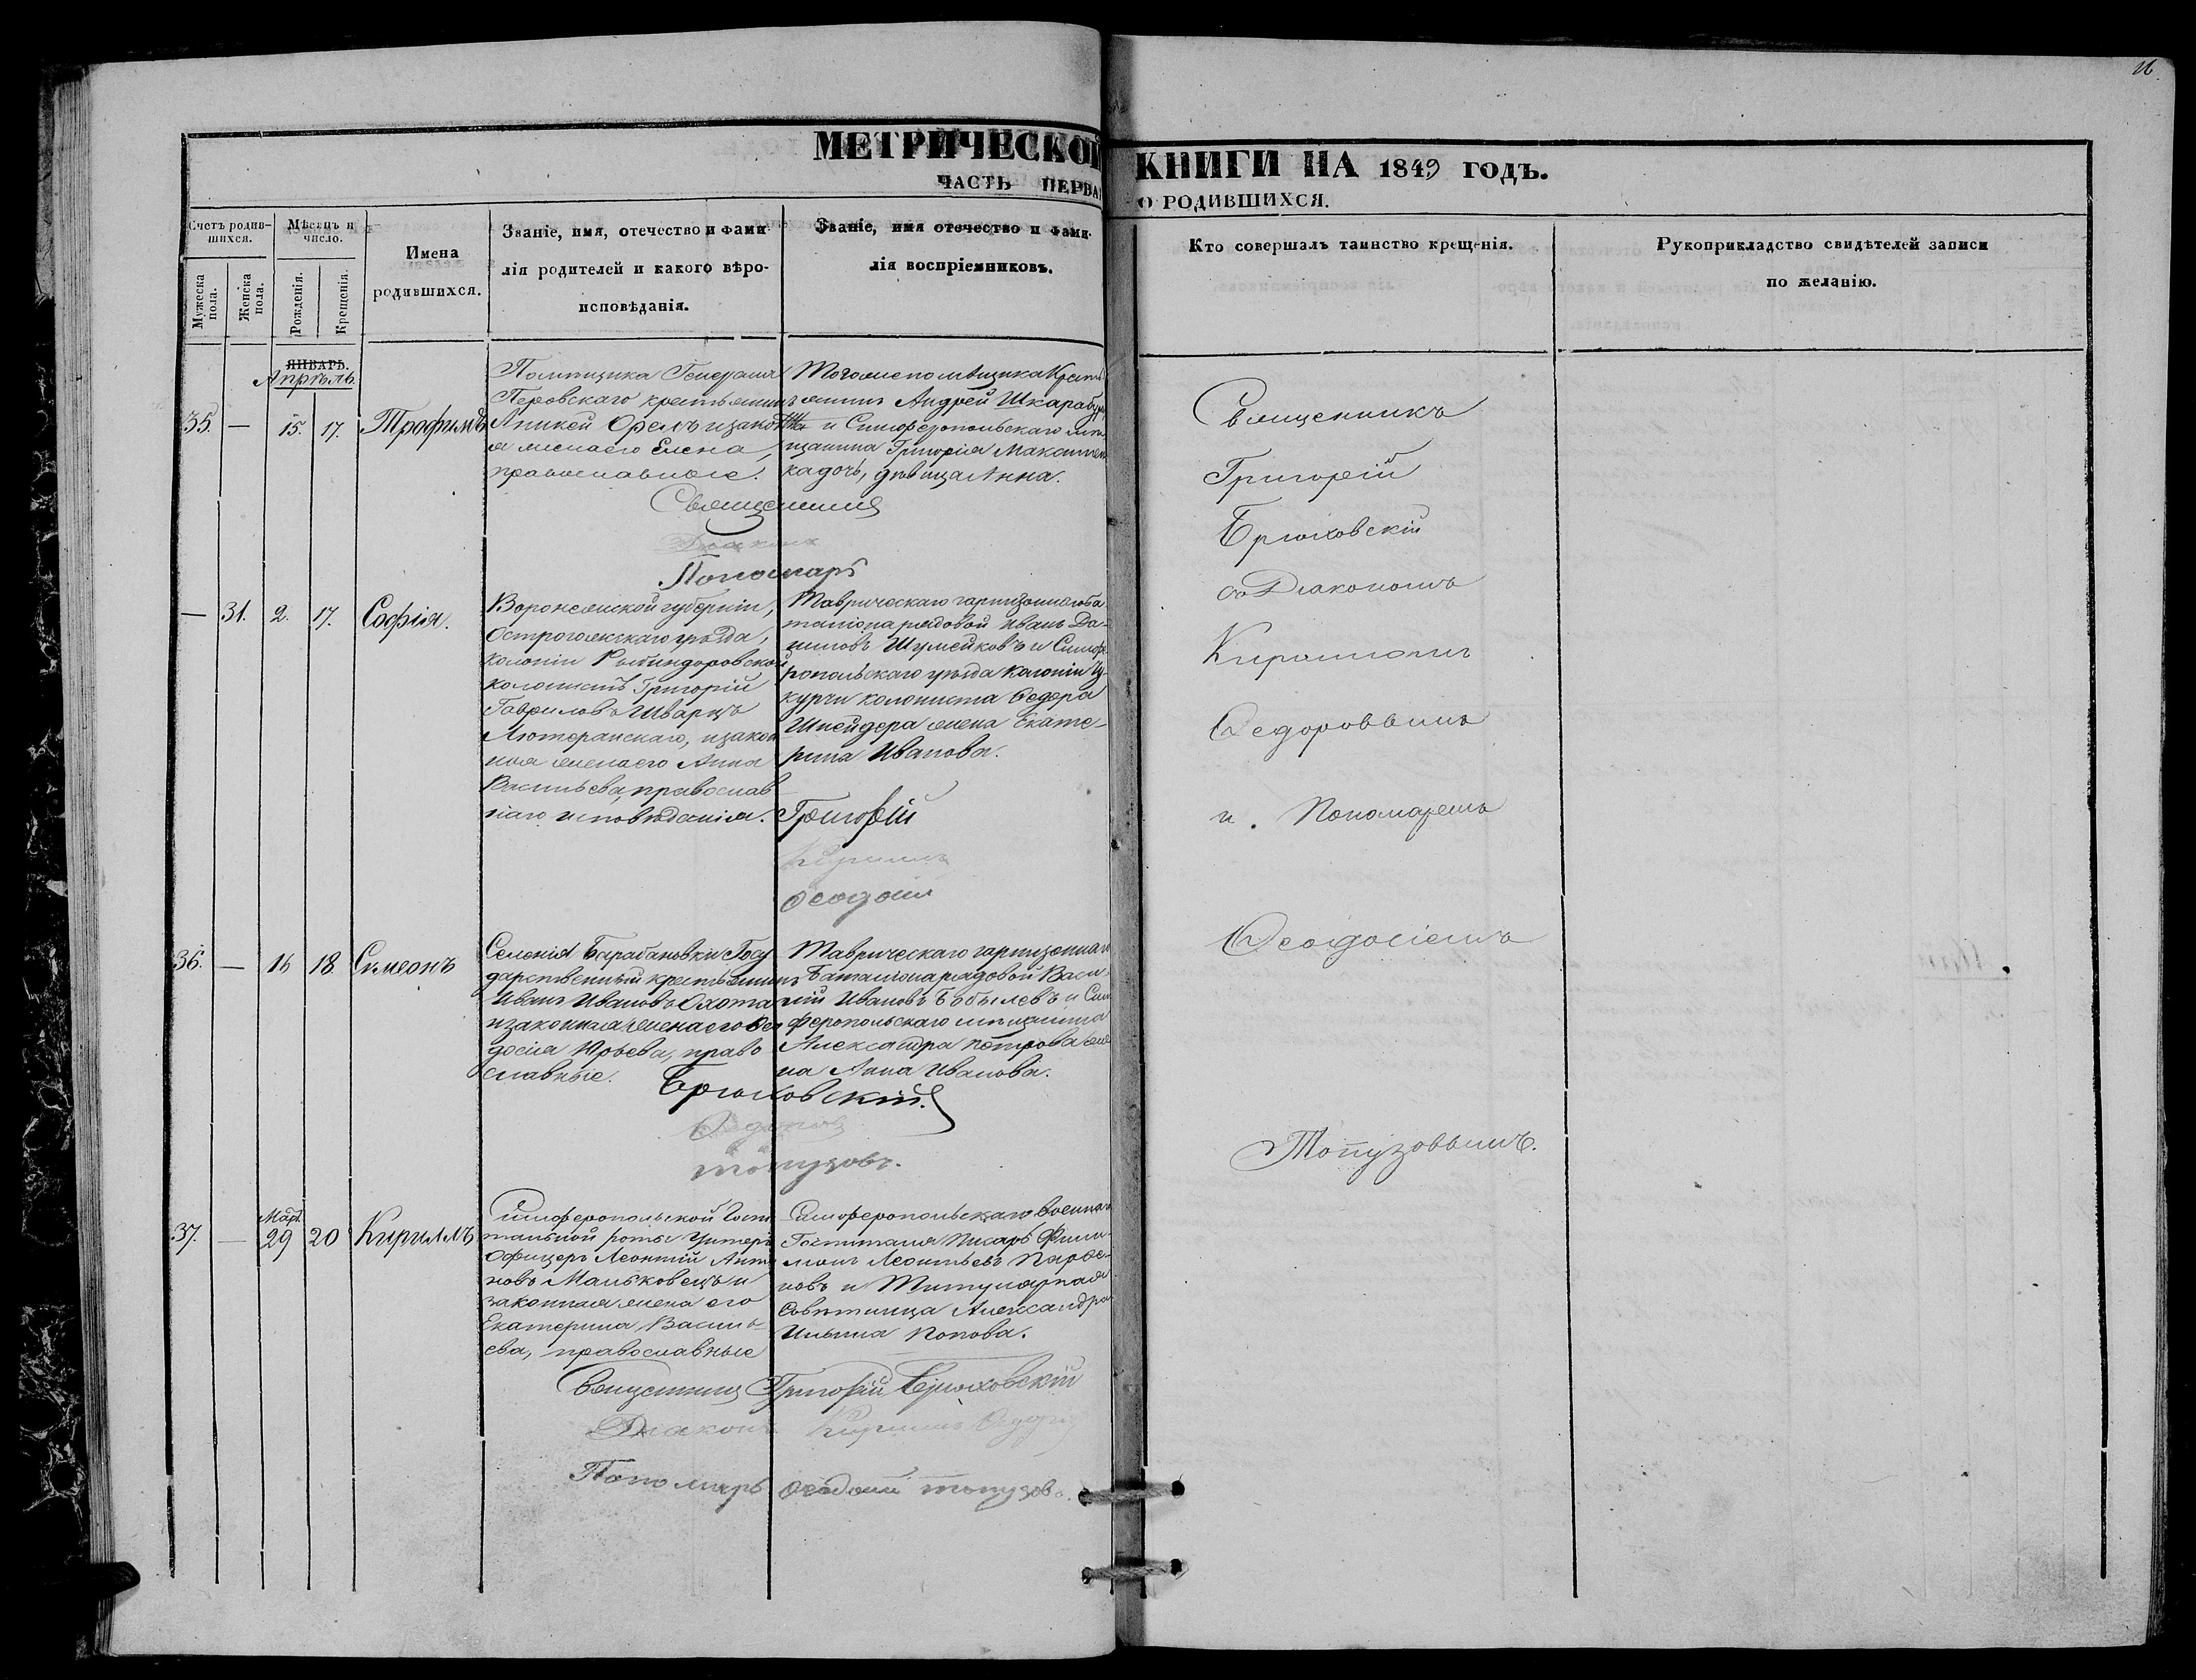 26.
МЕТРИЧЕСКОЙ КНИГИ НА 1849 ГОДЪ.
ЧАСТЬ ПЕРВАЯ
О РОДИВШИХСЯ.
Счетъ родив-
шихся.
Мужеска пола.
Женска пола.
Мѣсяцъ и
число.
Рожденія.
Крещенія.
Имена
родившихся.
Званіе, имя, отечество и фами-
лія родителей и какого вѣро-
исповѣданія.
Званіе, имя отечество и фами-
лія воспріемниковъ.
Кто совершалъ таинство крещенія.
Рукоприкладство свидѣтелей записи
по желанію.
ЯНВАРЬ.
Апрѣль
35. — 15. 17. Трофимъ
Помѣщика Генерала
Перовскаго крестьянинъ
Аникей Орелъ и закон
я жена его Елена,
православные.
Того же помѣщика крест
янинъ Андрей Шкарабур
и Симферопольскаго мѣ
щанина Григорія
ка дочь, дѣвица Анна.
Священникъ
Діаконъ
Пономарь
— 31. 2. 17. Софія.
Воронежской губерніи,
Острогожскаго уѣзда,
колоніи Рыбиндоровской
колонистъ Григорій
Гавриловъ Шварцъ
Лютеранскаго, и закон
ная жена его Анна
Васильева, православ
наго исповѣданія.
Таврическаго гарнизоннаго ба
таліона рядовой Иванъ Да-
ниловъ Шумейковъ и Симфе
ропольскаго уѣзда колоніи Цу-
курчи колониста Ѳедора
Шнейдера жена Екате-
рина Иванова.
Григорій
Кириллъ
Ѳеодосій
36. — 16 18 Симеонъ
Селенія Барабановки Госу
дарственный крестьянинъ
Иванъ Ивановъ Охота
и законная жена его Ѳео
досія Юрьева, право
славные.
Таврическаго гарнизонна
Баталіона рядовой Васи-
лій Ивановъ Бобылевъ и Сим
феропольскаго мѣщанина
Александра Петрова же
на Анна Иванова.
Брюховскій.
Ѳедоровъ
Топузовъ.
37. — Март. 29 20 Кириллъ
Симферопольской Госпи
тальной роты Унтеръ
Офицеръ Леонтій Анто
новъ Мальковецъ и
законная жена его
Екатерина Василь-
ева, православные
Симферопольскаго военнаго
Госпиталя писарь Фили-
монъ Леонтьевъ Парфе-
новъ и Титулярная
Совѣтница Александра
Ильина Попова.
Священникъ Григорій Брюховскій
Діаконъ Кириллъ Ѳедоровъ
Пономарь Ѳеодосій Топузовъ.
Священникъ
Григорій
Брюховскій
съ Діакономъ
Кирилломъ
Ѳедоровымъ
и. Пономаремъ
Ѳеодосіемъ
Топузовымъ.